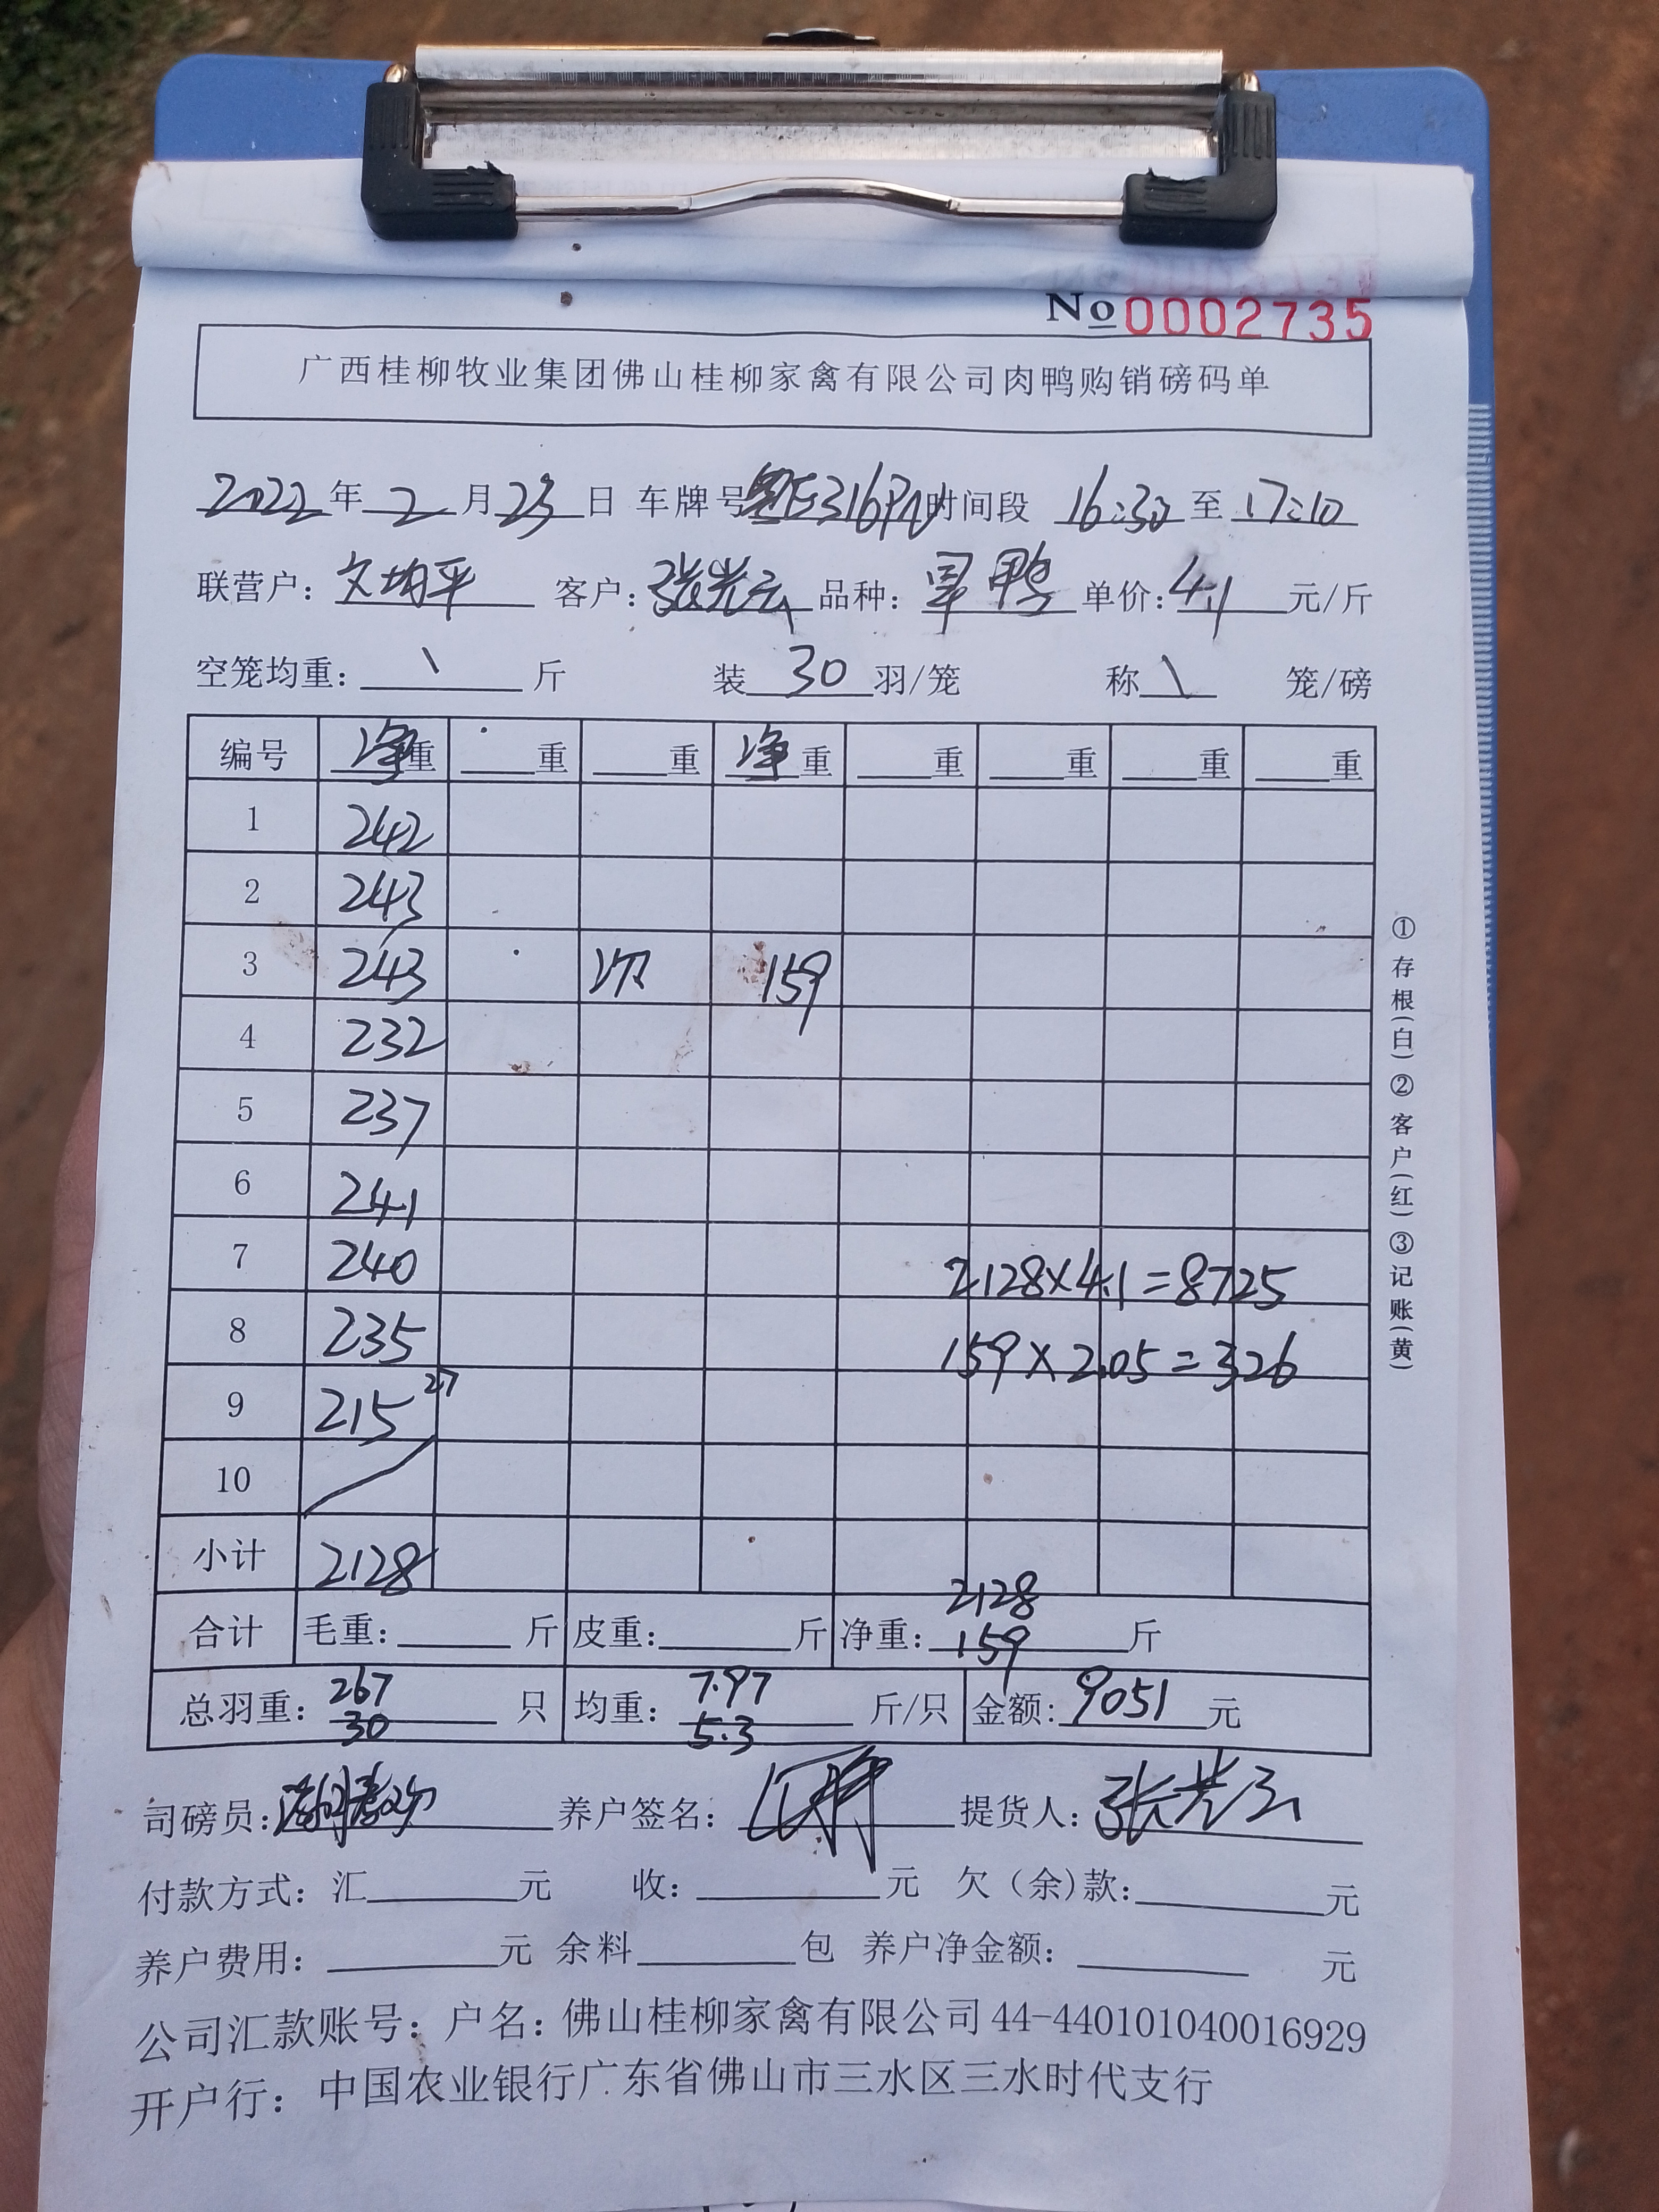 No 0002735
广西桂柳牧业集团佛山桂柳家禽有限公司肉鸭购销磅码单
2022年2月23日 车牌号 粤E316PN 时间段 16:30至17:10
联营户: 文均平 客户: 张光云 品种: 鸭 单价: 4.1 元/斤
空笼均重: \ 斤 装30羽/笼 称\ 笼/磅
编号 净重 重 重 净重 重 重 重 重
1 242
2 243
3 243 次 159
4 232
5 237
6 241
7 240 2128×4.1=8725
8 235 159×2.05=326
9 215 27
10
小计 2128
合计 毛重: 斤 皮重: 斤 净重: 2128 159 斤
总羽重: 267 30 只 均重: 7.97 5.3 斤/只 金额: 9051元
司磅员: 养户签名: 提货人: 张光云
付款方式: 汇 元 收: 元 欠(余)款: 元
养户费用: 元 余料 包 养户净金额: 元
公司汇款账号: 户名: 佛山桂柳家禽有限公司 44-440101040016929
开户行: 中国农业银行广东省佛山市三水区三水时代支行
①存根(白)②客户(红)③记账(黄)